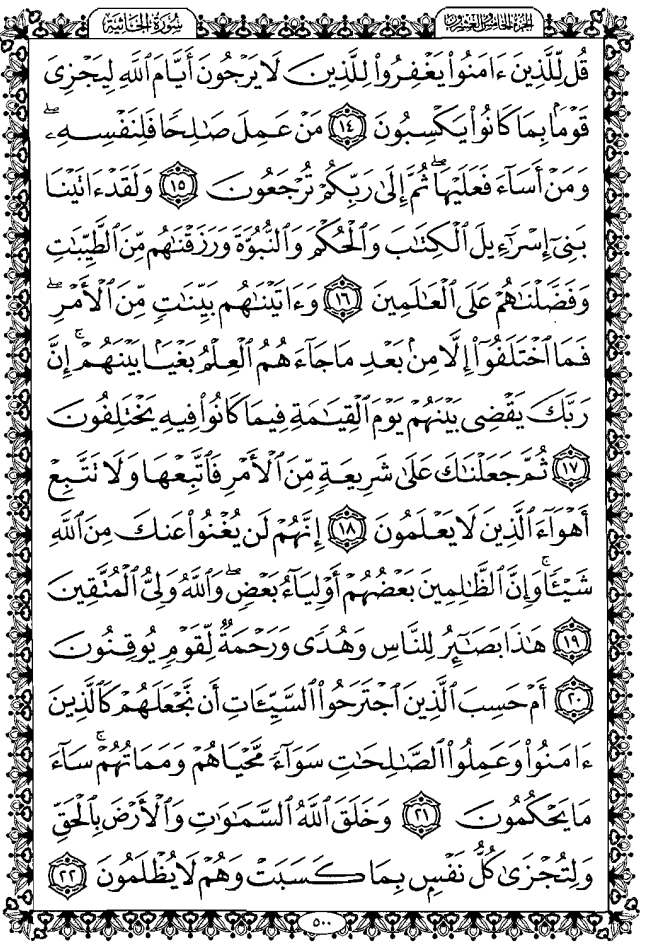 سُورَةُ الجَاثِيَةِ
الجُزْءُ الخَامِسُ وَالعِشْرُونَ
قُل لِّلَّذِينَ ءَامَنُوا۟ يَغْفِرُوا۟ لِلَّذِينَ لَا يَرْجُونَ أَيَّامَ ٱللَّهِ لِيَجْزِىَ
قَوْمًۢا بِمَا كَانُوا۟ يَكْسِبُونَ ١٤ مَنْ عَمِلَ صَـٰلِحًا فَلِنَفْسِهِۦۖ
وَمَنْ أَسَآءَ فَعَلَيْهَاۖ ثُمَّ إِلَىٰ رَبِّكُمْ تُرْجَعُونَ ١٥ وَلَقَدْ ءَاتَيْنَا
بَنِىٓ إِسْرَٰٓءِيلَ ٱلْكِتَـٰبَ وَٱلْحُكْمَ وَٱلنُّبُوَّةَ وَرَزَقْنَـٰهُم مِّنَ ٱلطَّيِّبَـٰتِ
وَفَضَّلْنَـٰهُمْ عَلَى ٱلْعَـٰلَمِينَ ١٦ وَءَاتَيْنَـٰهُم بَيِّنَـٰتٍ مِّنَ ٱلْأَمْرِۖ
فَمَا ٱخْتَلَفُوٓا۟ إِلَّا مِنۢ بَعْدِ مَا جَآءَهُمُ ٱلْعِلْمُ بَغْيًۢا بَيْنَهُمْۚ إِنَّ
رَبَّكَ يَقْضِى بَيْنَهُمْ يَوْمَ ٱلْقِيَـٰمَةِ فِيمَا كَانُوا۟ فِيهِ يَخْتَلِفُونَ
١٧ ثُمَّ جَعَلْنَـٰكَ عَلَىٰ شَرِيعَةٍ مِّنَ ٱلْأَمْرِ فَٱتَّبِعْهَا وَلَا تَتَّبِعْ
أَهْوَآءَ ٱلَّذِينَ لَا يَعْلَمُونَ ١٨ إِنَّهُمْ لَن يُغْنُوا۟ عَنكَ مِنَ ٱللَّهِ
شَيْـًٔاۚ وَإِنَّ ٱلظَّـٰلِمِينَ بَعْضُهُمْ أَوْلِيَآءُ بَعْضٍۖ وَٱللَّهُ وَلِىُّ ٱلْمُتَّقِينَ
١٩ هَـٰذَا بَصَـٰٓئِرُ لِلنَّاسِ وَهُدًى وَرَحْمَةٌ لِّقَوْمٍ يُوقِنُونَ
٢٠ أَمْ حَسِبَ ٱلَّذِينَ ٱجْتَرَحُوا۟ ٱلسَّيِّـَٔاتِ أَن نَّجْعَلَهُمْ كَٱلَّذِينَ
ءَامَنُوا۟ وَعَمِلُوا۟ ٱلصَّـٰلِحَـٰتِ سَوَآءً مَّحْيَاهُمْ وَمَمَاتُهُمْۚ سَآءَ
مَا يَحْكُمُونَ ٢١ وَخَلَقَ ٱللَّهُ ٱلسَّمَـٰوَٰتِ وَٱلْأَرْضَ بِٱلْحَقِّ
وَلِتُجْزَىٰ كُلُّ نَفْسٍۭ بِمَا كَسَبَتْ وَهُمْ لَا يُظْلَمُونَ ٢٢
٥٠٠